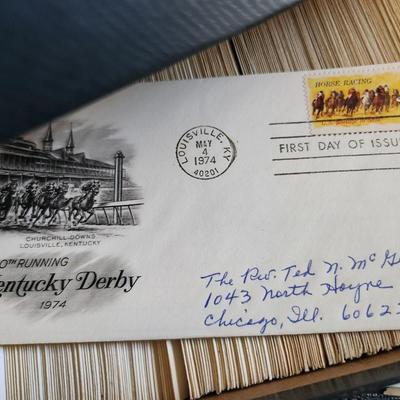 HORSE RACING
LOUISVILLE, KY
MAY
4
1974
40201
FIRST DAY OF ISSUE
CHURCHILL DOWNS
LOUISVILLE, KENTUCKY
0TH RUNNING
Kentucky Derby
1974
The Rev. Ted N.
1043 North Hoyne
Chicago, Ill. 6062